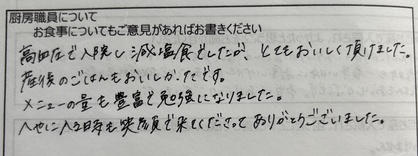 厨房職員について
お食事についてもご意見があればお書きください
高血圧で入院し減塩食でしたが、とてもおいしく頂けました。
産後のごはんもおいしかったです。
メニューの量も豊富で勉強になりました。
へやに入る時も笑顔で来てくださってありがとうございました。